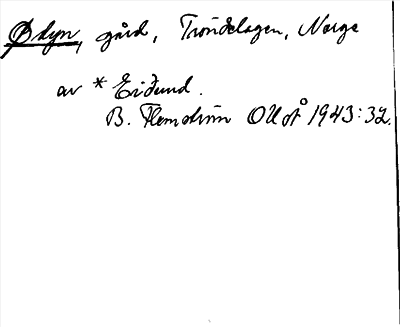 Ødyn, gård, Tröndelagen, Norge
av * Eiðund.
B. Flemström OUÅ 1943:32.